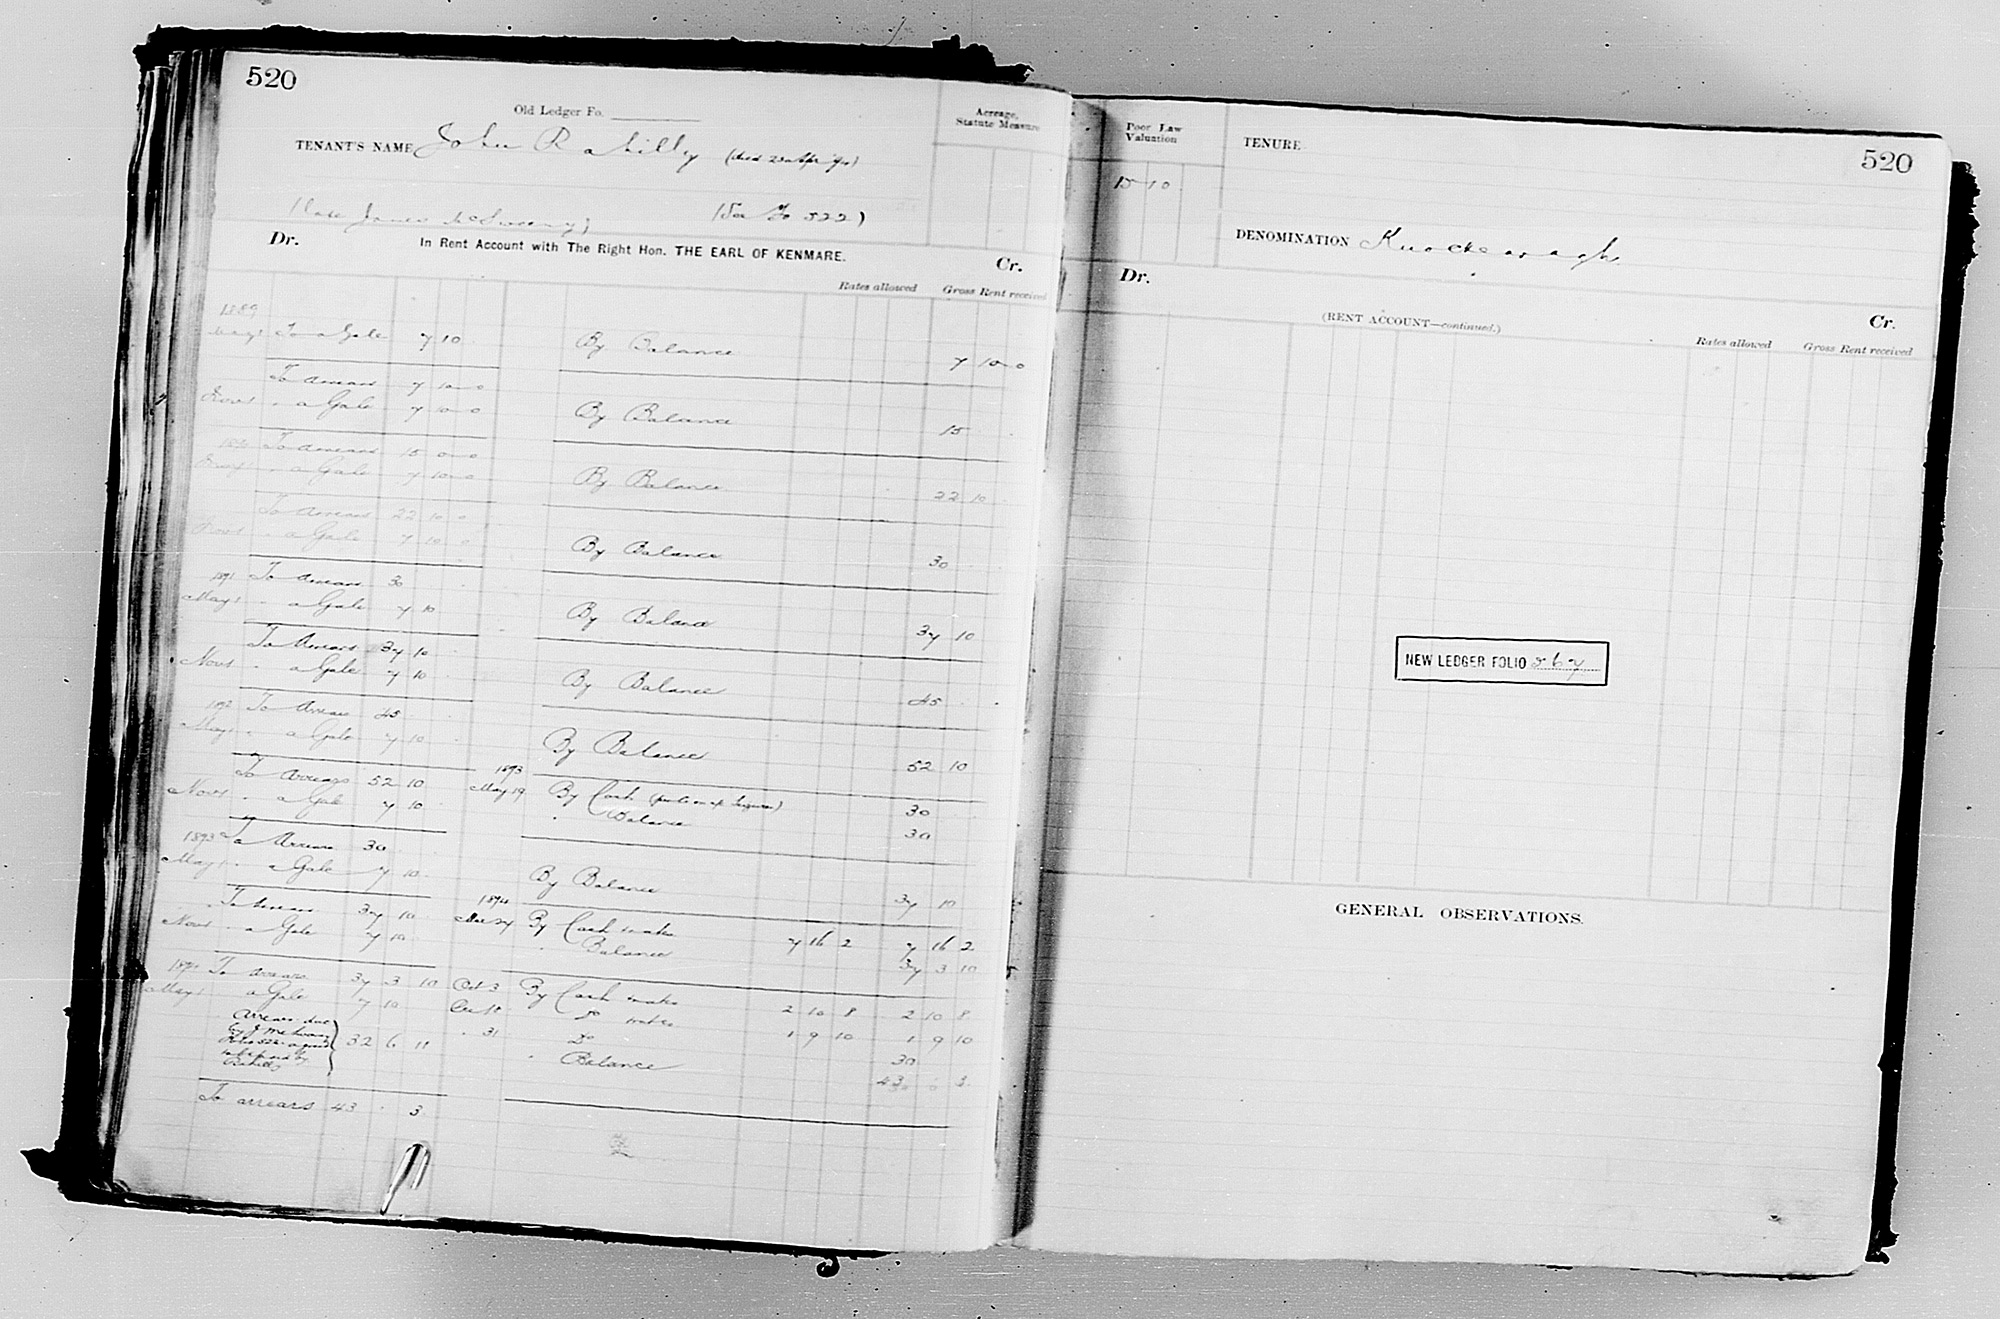 520
Old Ledger Fo.
TENANT'S NAME John Rahilly
(late James McSweeny) (See Fo 522)
Acreage, Statute Measure
Dr. In Rent Account with The Right Hon. THE EARL OF KENMARE. Cr.
Rates allowed Gross Rent received
1889
May 1 To a Gale 7 10 By Balance 7 10 0
To Arrears 7 10 0
Novr 1 " a Gale 7 10 0 By Balance 15
To Arrears 15 0 0
May 1 " a Gale 7 10 0 By Balance 22 10
To Arrears 22 10 0
Novr 1 " a Gale 7 10 0 By Balance 30
1891 To Arrears 30
May 1 " a Gale 7 10 By Balance 37 10
To Arrears 37 10
Novr 1 " a Gale 7 10 By Balance 45
1892 To Arrears 45
May 1 " a Gale 7 10 By Balance 52 10
To Arrears 52 10 1893 May 19 By Cash 30
Novr 1 " a Gale 7 10 " Balance 30
1893 To Arrears 30
May 1 " a Gale 7 10 By Balance 37 10
To Arrears 37 10 1894 By Cash 7 16 2 7 16 2
Novr 1 " a Gale 7 10 " Balance 37 3 10
1894 To Arrears 37 3 10 Oct 3 By Cash 2 10 8 2 10 8
May 1 a Gale 7 10 Do 1 9 10 1 9 10
Arrears due 32 6 11 " 31 Do 30
" Balance 43 0 3
To arrears 43 " 3
520
Poor Law Valuation
15 10
TENURE
DENOMINATION Knockearagh
Dr. (RENT ACCOUNT—continued.) Cr.
Rates allowed Gross Rent received
NEW LEDGER FOLIO
GENERAL OBSERVATIONS.